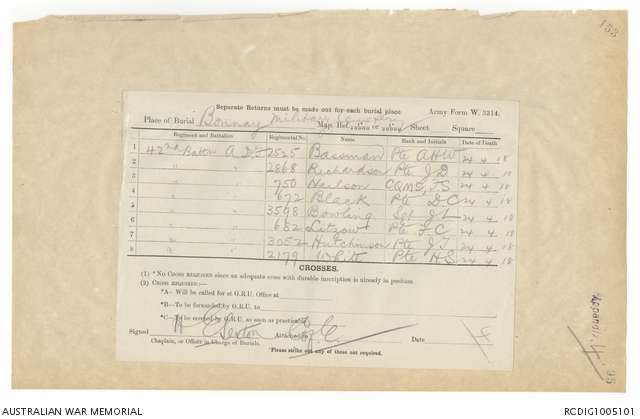 133
Separate Returns must be made out for each burial place
Army Form W. 3314.
Place of Burial Bonnay Military Cemetery Map Ref. 1/20000 or 1/40000 Sheet Square
Regiment and Battalion Regimental No. Name Rank and Initials Date of Death
1 42nd Battn A.I.F. 2525 Bassman Pte A.H.W. 24 4 18
2 " " 2868 Richardson Pte J D 24 4 18
3 " " 750 Neilson CQMS, J.S 24 4 18
4 " " 672 Black Pte D C 24 4 18
5 " " 3598 Bowling Sgt J L 24 4 18
6 " " 682 Litzow Pte F C 24 4 18
7 " " 3052 Hutchinson Pte J.T. 24 4 18
8 " " 2179 White Pte H S 24 4 18
CROSSES.
(1) *No CROSS REQUIRED since an adequate cross with durable inscription is already in position
(2) CROSS REQUIRED:—
*A— Will be called for at G.R.U. Office at
*B—To be forwarded by G.R.U. to
*C—To be erected by G.R.U. as soon as practicable
Signed H E Sexton Attached C.F. Date
Chaplain, or Officer in Charge of Burials.
*Please strike out any of these not required.
AUSTRALIAN WAR MEMORIAL
RCDIG1005101